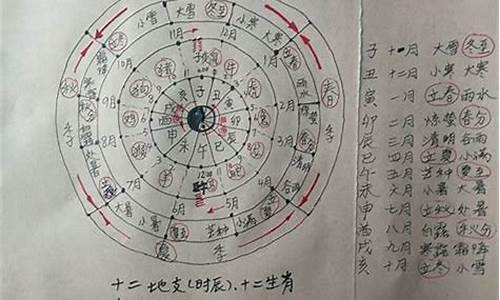 小雪 大雪 冬至 小寒 大寒
11月 12月 1月
立冬 立春
10月 2月
雨水
惊蛰
春分
9月 3月
秋 季
春 季
清明
谷雨
8月 4月
7月 5月
6月
立秋
大暑 小暑 夏至 芒种 小满
夏 季
猪 鼠 牛
狗 鸡
子 丑 寅 卯 辰 巳 午 未 申 酉 戌 亥
子 十一月 大雪 冬至
丑 十二月 小寒 大寒
寅 一月 立春 雨水
卯 二月 惊蛰 春分
辰 三月 清明 谷雨
巳 四月 立夏 小满
午 五月 芒种 夏至
未 六月 小暑 大暑
申 七月 立秋 处暑
酉 八月 白露 秋分
戌 九月 寒露 霜降
亥 十月 立冬 小雪
十二地支(时辰)、十二生肖